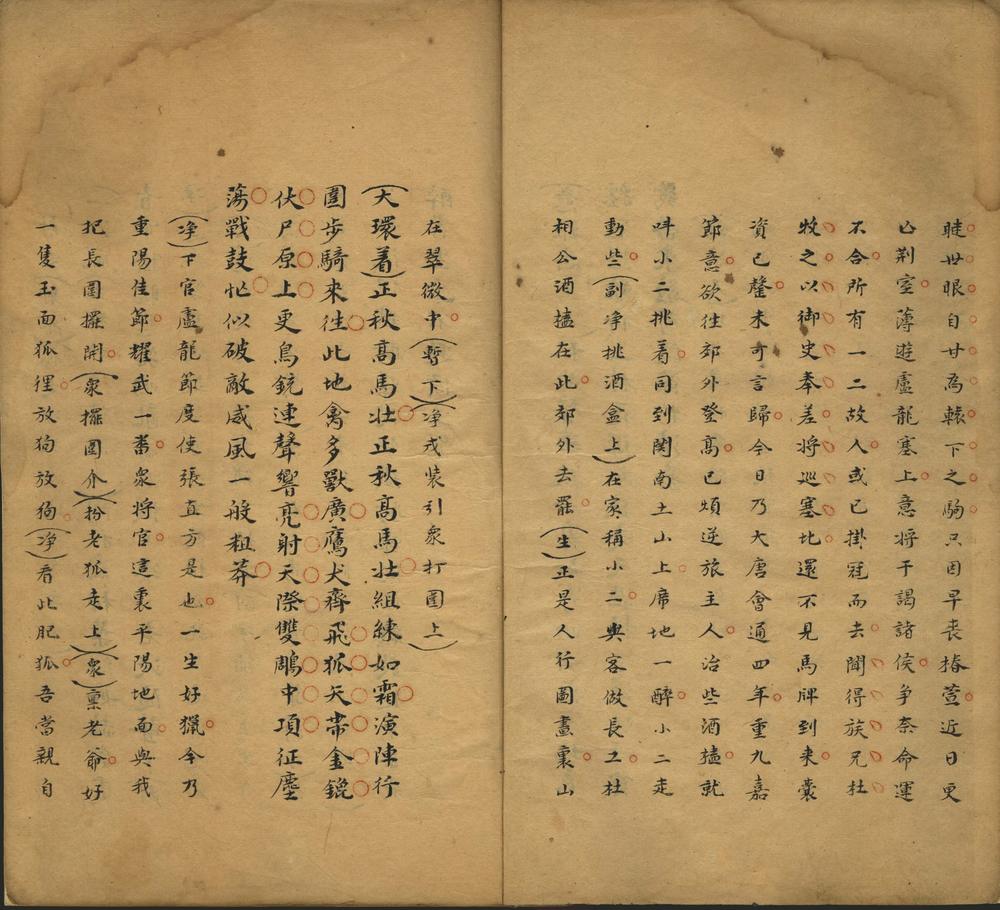 睫世眼自廿為轅下之駒只因早喪椿萱近日更
凶荆室薄遊盧龍塞上意將干謁諸侯争奈命運
不合所有一二故人或已掛冠而去聞得族兄杜
牧之以御史奉差將巡塞北還不見馬牌到来囊
資已罄未可言歸今日乃大唐會通四年重九嘉
節意欲往郊外登高已煩逆旅主人治些酒榼就
呌小二挑着同到関南土山上席地一醉小二走
動些(副净挑酒盒上)在家稱小二與客做長工杜
相公酒榼在此郊外去罷(生)正是人行圖畫裏山
在翠微中(暫下)(净戎装引衆打圍上)
(大環着)正秋高馬壮正秋高馬壮組練如霜演陣行
圍步騎来往此地禽多獸廣鷹犬齊飛狐矢帯金鋧
伏尸原上更鳥銃連聲響亮射天際雙鵰中項征塵
蕩戰鼓忙似破敵威風一般粗莽
(净)下官盧龍節度使張直方是也一生好獵今乃
重陽佳節耀武一畨衆將官這裏平陽地面與我
把長圍擺開(衆擺圍介)(扮老狐走上)(衆)禀老爺好
一隻玉面狐狸放狗放狗(净)看此肥狐吾當親自